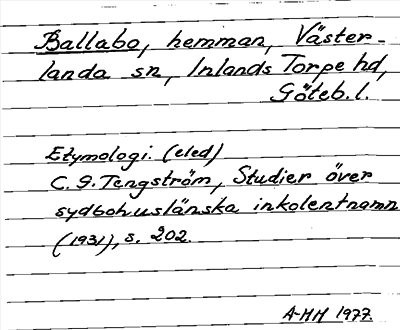 Ballabo, hemman, Väster-
landa sn, Inlands Torpe hd,
Göteb. l.
Etymologi. (eled)
C. G. Tengström, Studier över
sydbohuslänska inkolentnamn
(1931), s. 202.
A-HH 1977.